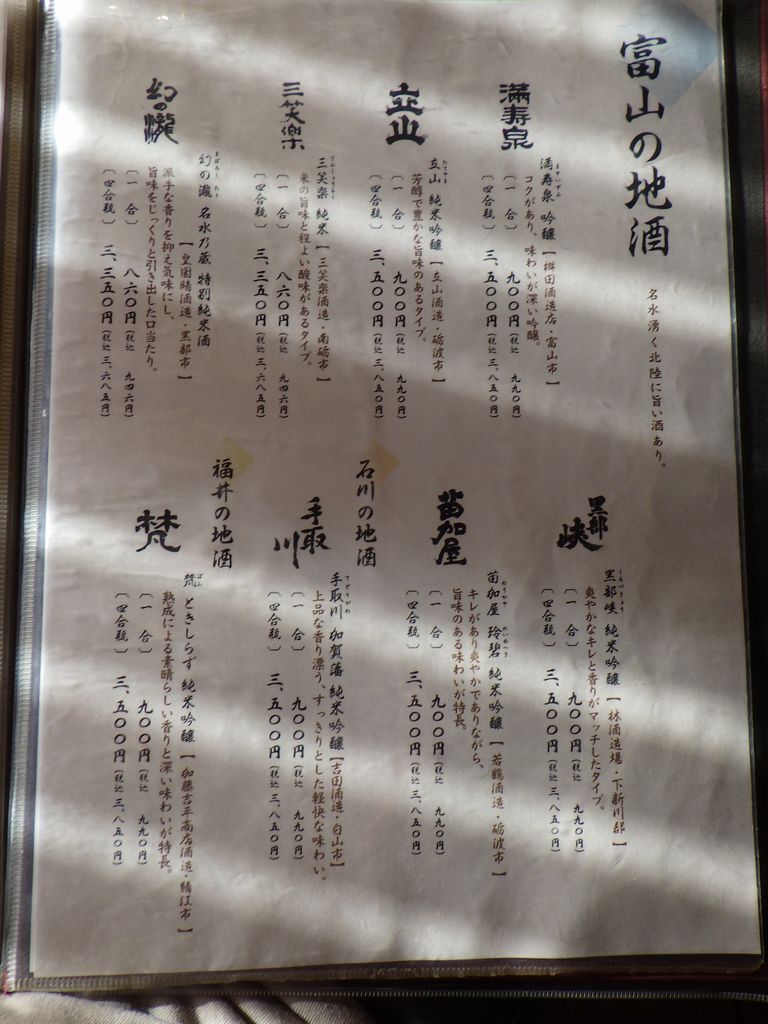 富山の地酒
名水湧く北陸に旨い酒あり。
満寿泉
満寿泉 吟醸 【桝田酒造店・富山市】
ますいずみ
コクがあり、味わいが深い吟醸。
〔一 合〕 九〇〇円 (税込 九九〇円)
〔四合瓶〕 三、五〇〇円 (税込 三、八五〇円)
立山
立山 純米吟醸 【立山酒造・砺波市】
たてやま
芳醇で豊かな旨味のあるタイプ。
〔一 合〕 九〇〇円 (税込 九九〇円)
〔四合瓶〕 三、五〇〇円 (税込 三、八五〇円)
三笑楽
三笑楽 純米 【三笑楽酒造・南砺市】
さんしょうらく
米の旨味と程よい酸味があるタイプ。
〔一 合〕 八六〇円 (税込 九四六円)
〔四合瓶〕 三、三五〇円 (税込 三、六八五円)
幻の瀧
幻の瀧 名水乃蔵 特別純米酒
まぼろし たき
【皇国晴酒造・黒部市】
派手な香りを抑え気味にし、
旨味をじっくりと引き出した口当たり。
〔一 合〕 八六〇円 (税込 九四六円)
〔四合瓶〕 三、三五〇円 (税込 三、六八五円)
黒部峡
黒部峡 純米吟醸 【林酒造場・下新川郡】
くろべきょう
爽やかなキレと香りがマッチしたタイプ。
〔一 合〕 九〇〇円 (税込 九九〇円)
〔四合瓶〕 三、五〇〇円 (税込 三、八五〇円)
苗加屋
苗加屋 玲碧 純米吟醸 【若鶴酒造・砺波市】
のうかや れいのへき
キレがあり爽やかでありながら、
旨味のある味わいが特長。
〔一 合〕 九〇〇円 (税込 九九〇円)
〔四合瓶〕 三、五〇〇円 (税込 三、八五〇円)
石川の地酒
手取川
手取川 加賀藩 純米吟醸 【吉田酒造・白山市】
てどりがわ
上品な香り漂う、すっきりとした軽快な味わい。
〔一 合〕 九〇〇円 (税込 九九〇円)
〔四合瓶〕 三、五〇〇円 (税込 三、八五〇円)
福井の地酒
梵
梵 ときしらず 純米吟醸 【加藤吉平商店酒造・鯖江市】
ぼん
熟成による素晴らしい香りと深い味わいが特長。
〔一 合〕 九〇〇円 (税込 九九〇円)
〔四合瓶〕 三、五〇〇円 (税込 三、八五〇円)